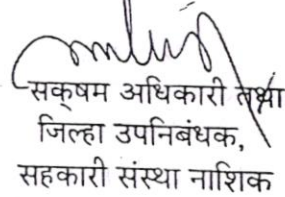 सक्षम अधिकारी तथा
जिल्हा उपनिबंधक,
सहकारी संस्था नाशिक